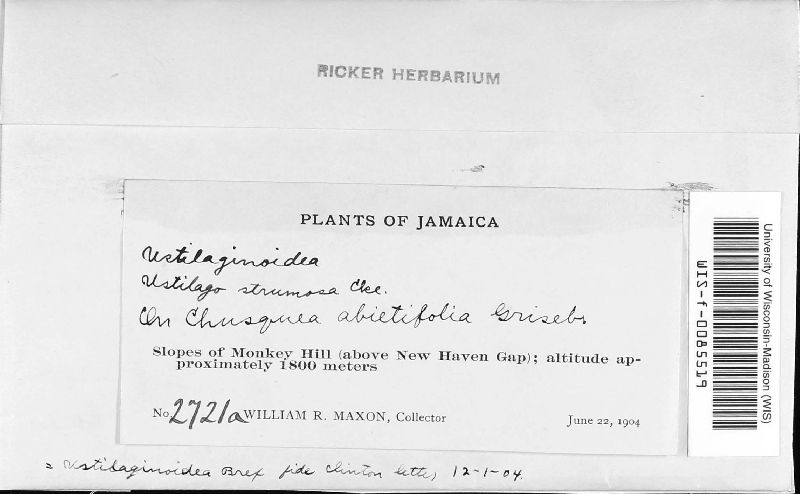 RICKER HERBARIUM
PLANTS OF JAMAICA
Ustilaginoidea
Ustilago strumosa Cke.
On Chusquea abietifolia Griseb.
Slopes of Monkey Hill (above New Haven Gap); altitude ap-
proximately 1800 meters
No. 2721a WILLIAM R. MAXON, Collector June 22, 1904
= Ustilaginoidea Bref fide Clinton letter, 12-1-04.
University of Wisconsin-Madison (WIS)
WIS-f-0085519